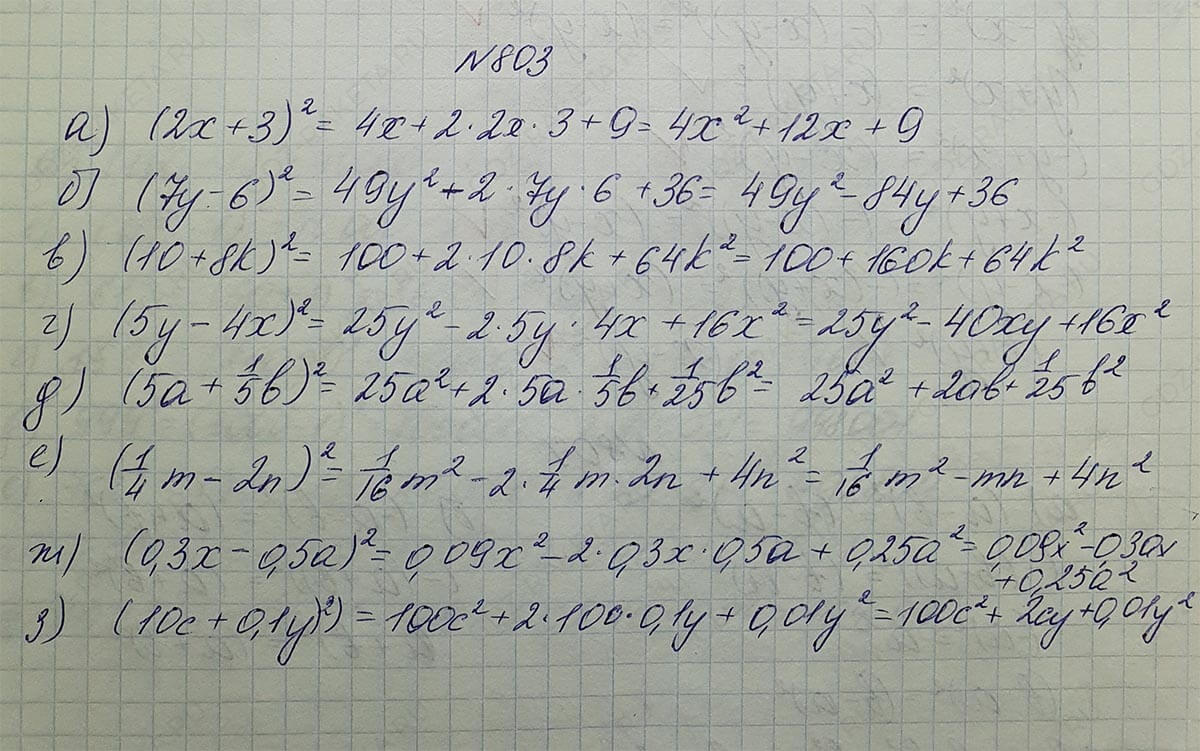 N803
а) (2x+3)² = 4x+2·2x·3+9 = 4x²+12x+9
б) (7y-6)² = 49y²+2·7y·6+36 = 49y²-84y+36
в) (10+8k)² = 100+2·10·8k+64k² = 100+160k+64k²
г) (5y-4x)² = 25y²-2·5y·4x+16x² = 25y²-40xy+16x²
д) (5a+1/5b)² = 25a²+2·5a·1/5b+1/25b² = 25a²+2ab+1/25b²
е) (1/4m-2n)² = 1/16m²-2·1/4m·2n+4n² = 1/16m²-mn+4n²
ж) (0,3x-0,5a)² = 0,09x²-2·0,3x·0,5a+0,25a² = 0,09x²-0,3ax
+0,25a²
з) (10c+0,1y)²) = 100c²+2·10c·0,1y+0,01y² = 100c²+2cy+0,01y²